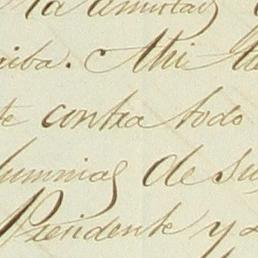 la
riba. Ahi
te contra todo
lumnias de su
Presidente y